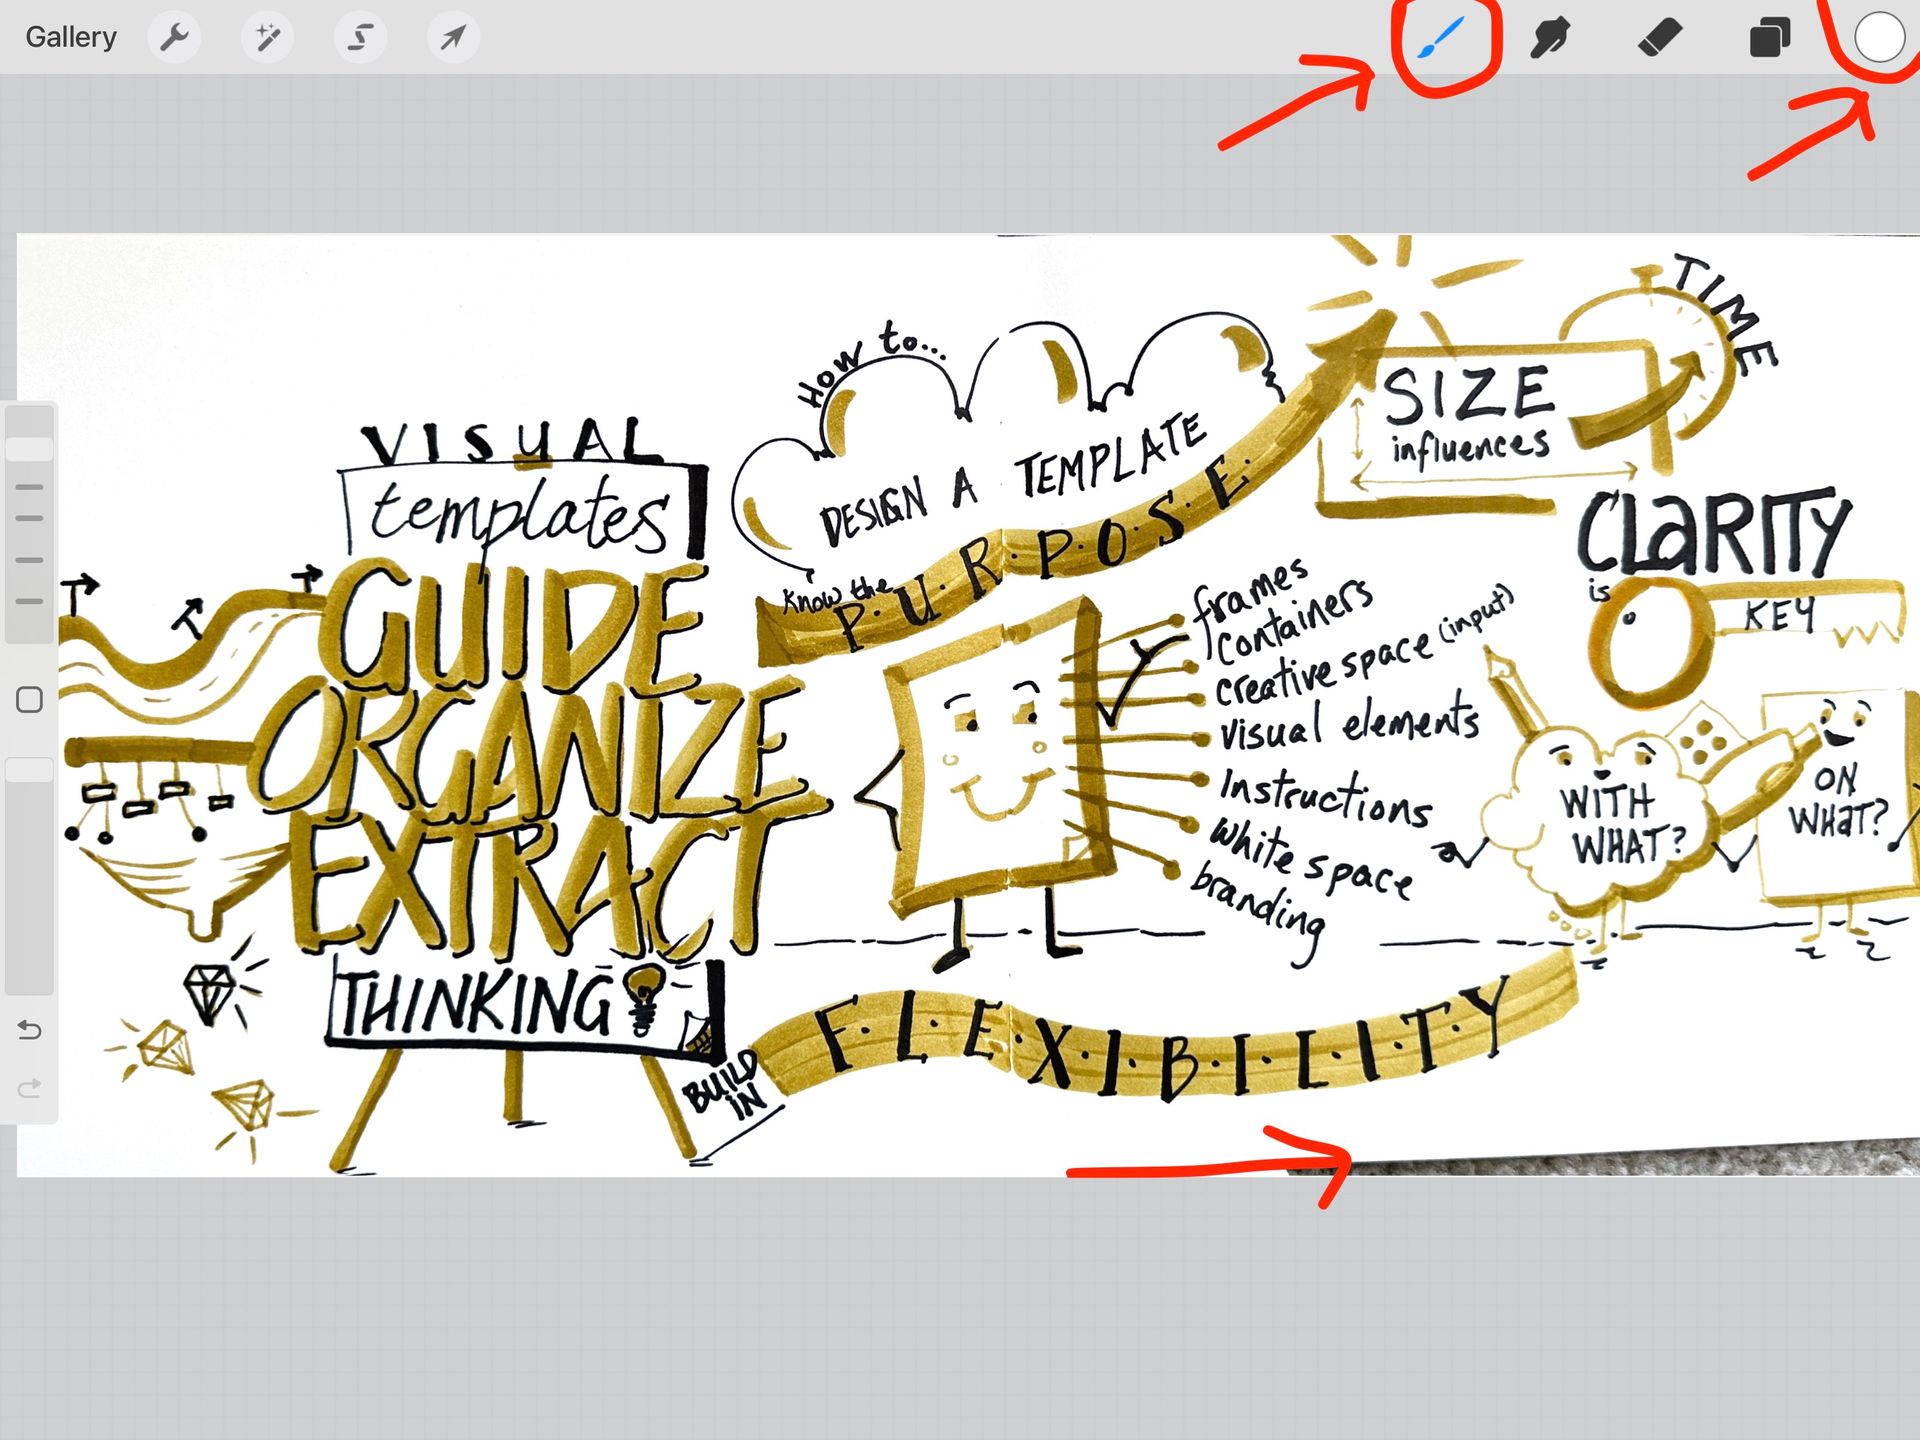 Gallery
VISUAL
templates
GUIDE
ORGANIZE
EXTRACT
THINKING
How to...
DESIGN A TEMPLATE
Know the
P.U.R.P.O.S.E.
frames
containers
creative space (input)
visual elements
Instructions
white space
branding
BUILD
IN
F.L.E.X.I.B.I.L.I.T.Y
SIZE
influences
TIME
CLARITY
is
KEY
WITH
WHAT?
ON
WHAT?